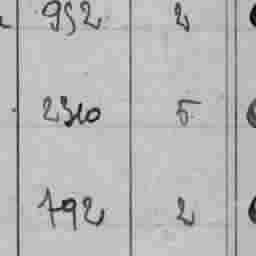 952 2
2310 5
792 2